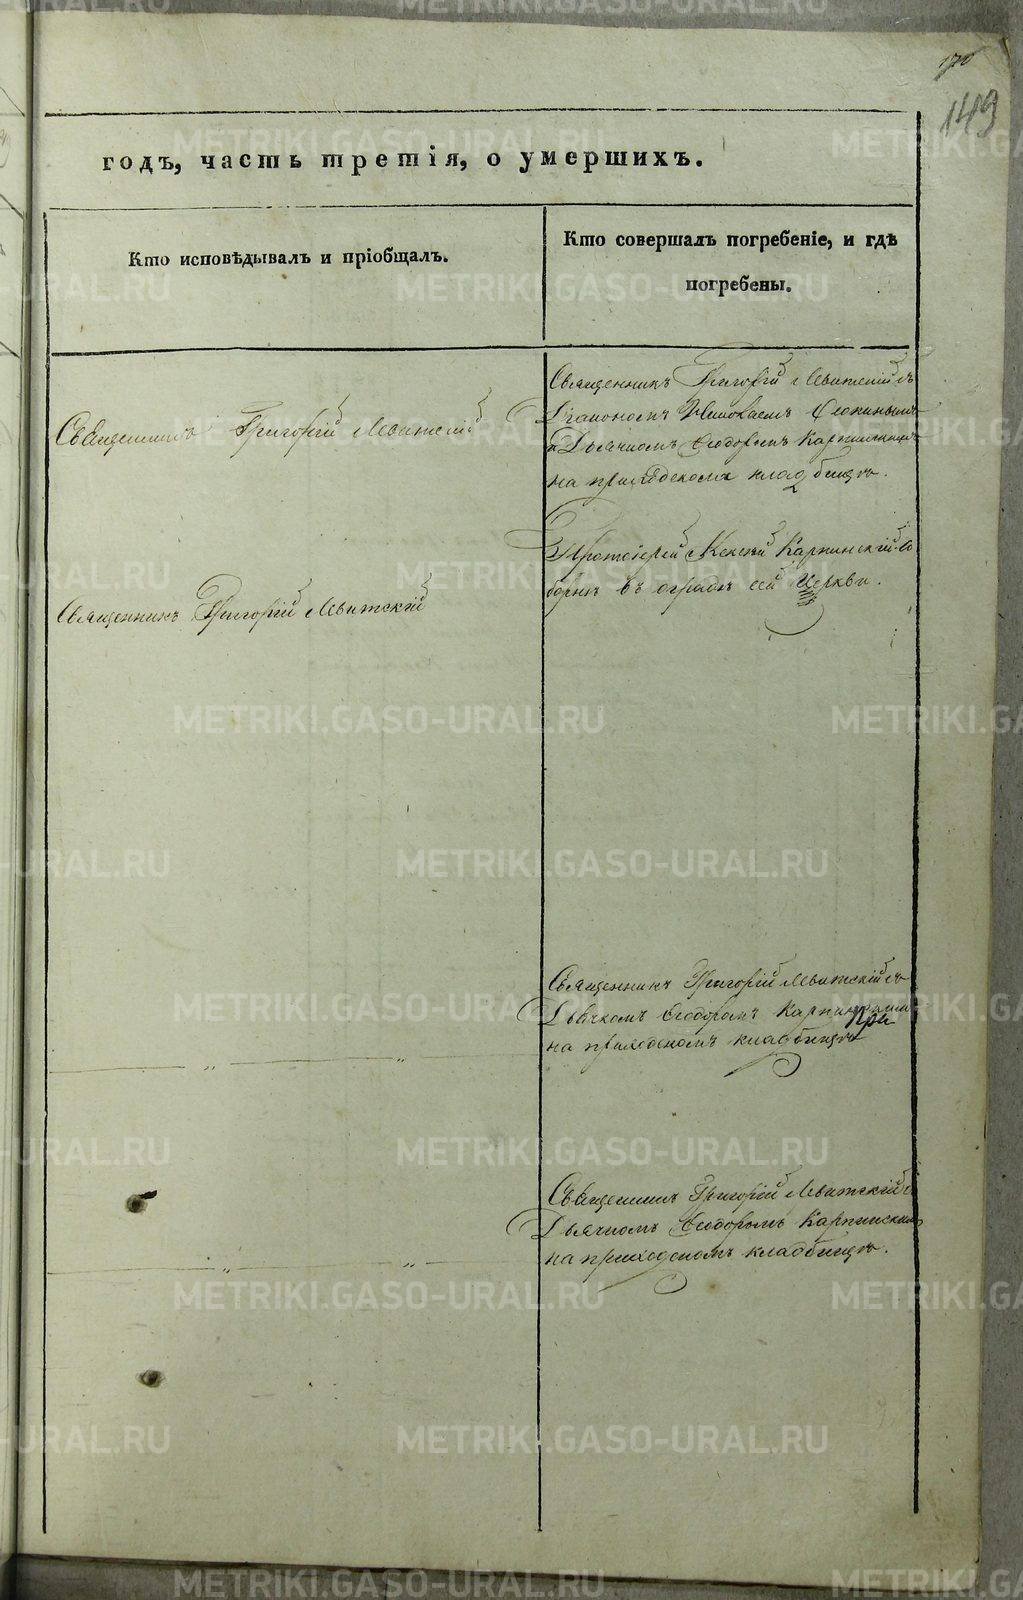 149
годъ, часть третія, о умершихъ.
Кто исповѣдывалъ и пріобщалъ.
Кто совершалъ погребеніе, и гдѣ
погребены.
Священникъ Григорій Левитскій
Священникъ Григорій Левитскій съ
Діакономъ Николаемъ
и Дьячкомъ Ѳеодоромъ Карпинскимъ
на приходскомъ кладбищѣ.
Священникъ Григорій Левитскій
Протоіерей Алексѣй Карпинскій со-
борнѣ въ оградѣ сей Церкви.
„ „
Священникъ Григорій Левитскій съ
Дьячкомъ Ѳеодоромъ Карпинскимъ
на приходскомъ кладбищѣ
„ „
Священникъ Григорій Левитскій съ
Дьячкомъ Ѳеодоромъ Карпинскимъ
на приходскомъ кладбищѣ.
METRIKI.GASO-URAL.RU